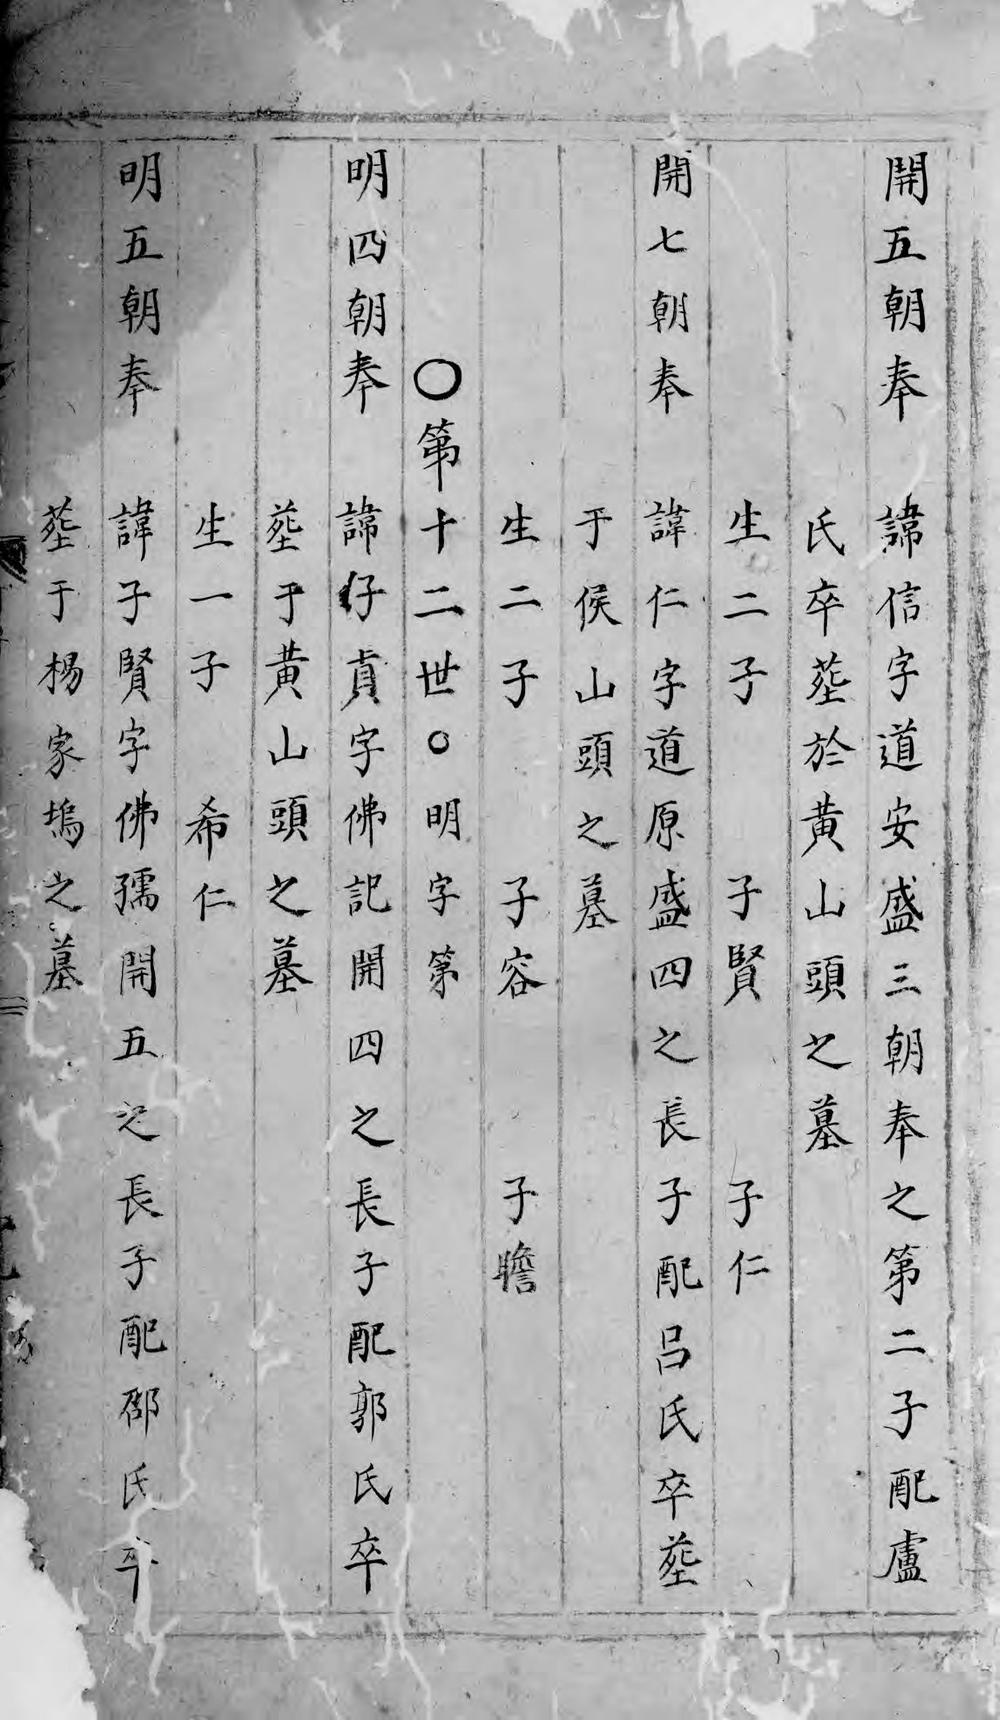 開五朝奉 諱信字道安盛三朝奉之第二子配盧
氏卒塟於黃山頭之墓
生二子 子賢 子仁
開七朝奉 諱仁字道原盛四之長子配吕氏卒塟
于侯山頭之墓
生二子 子容 子瞻
〇第十二世〇明字第
明四朝奉 諱仔貞字佛記開四之長子配郭氏卒
塟于黃山頭之墓
生一子 希仁
明五朝奉 諱子賢字佛孺開五之長子配邵氏卒
塟于楊家塢之墓